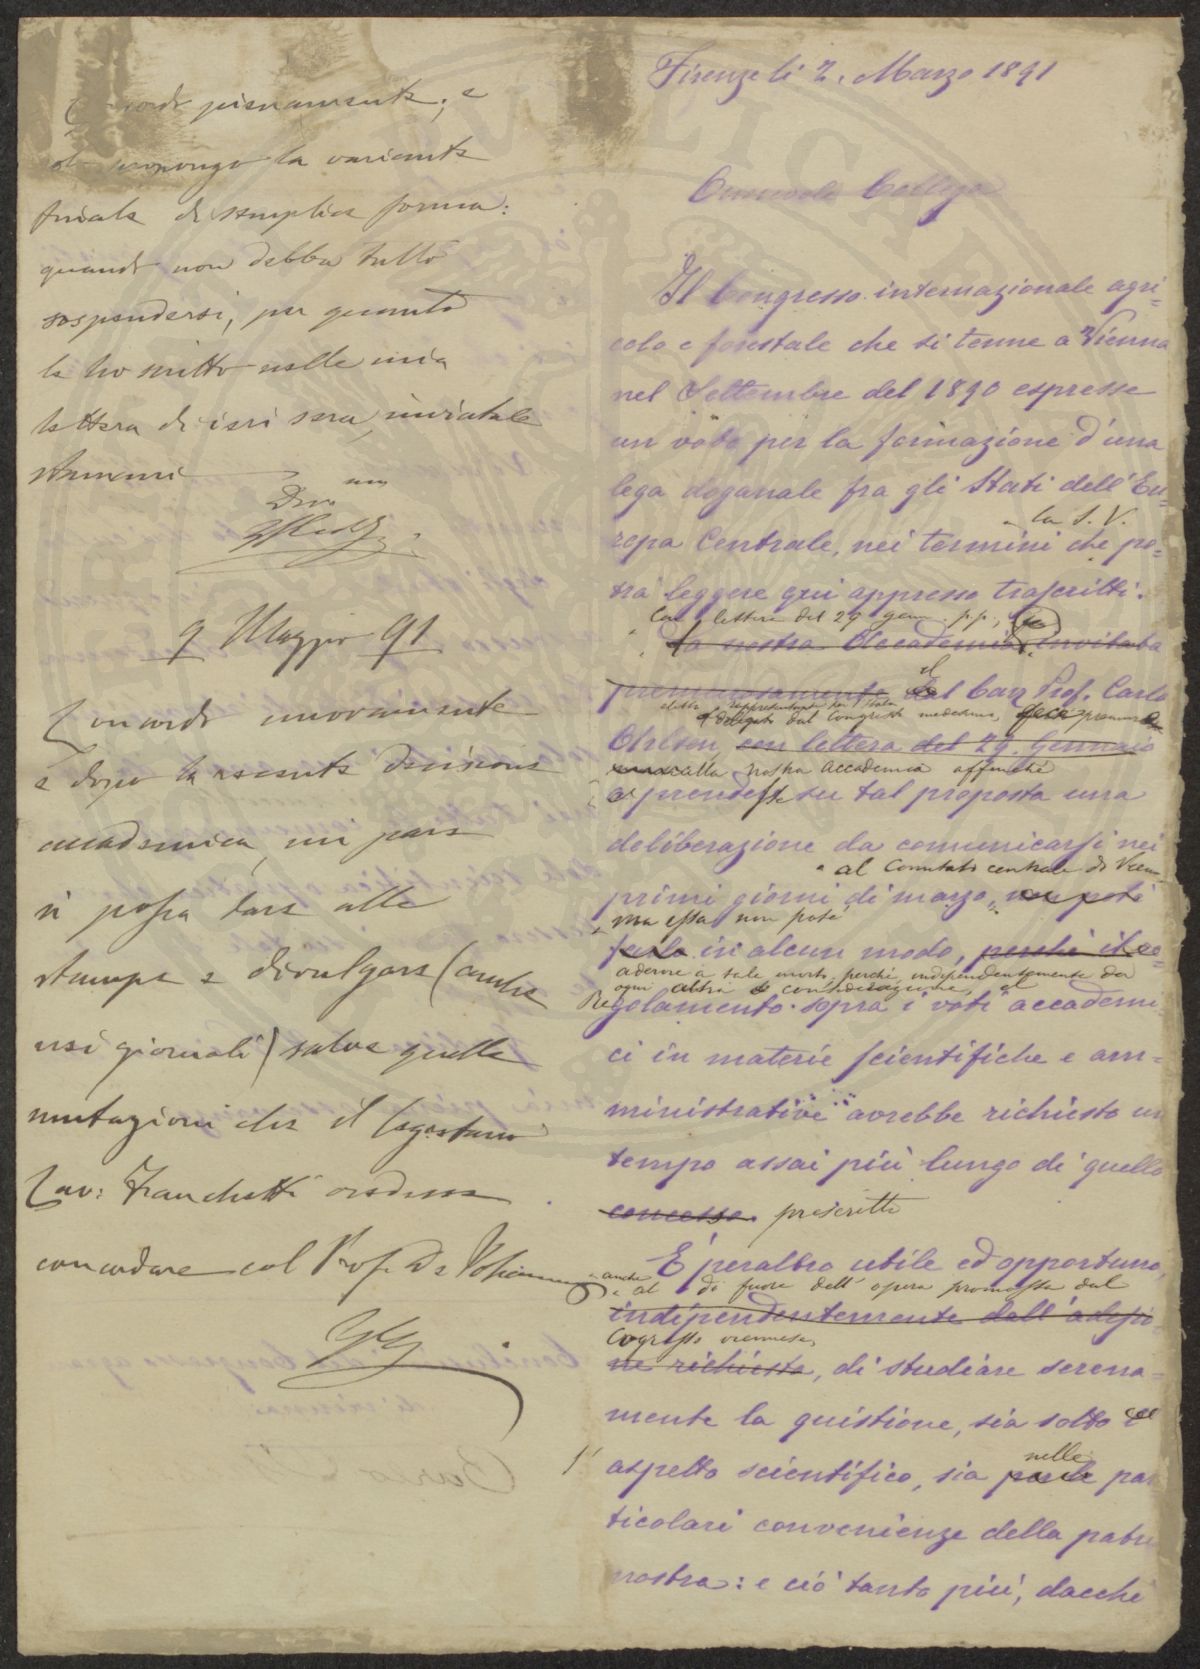 pienamente; e
propongo la variante
finale di semplice forma:
quando non debba tutto
sospendersi, per quanto
le ho scritto nella mia
lettera di ieri sera, inviatale
Dev
9 Maggio 91
Concordo nuovamente
e dopo la recente decisione
accademica, mi pare
si possa dare alle
stampe e divulgare (anche
nei giornali) salve quelle
mutazioni che il Segretario
Cav: Franchetti credesse
concordare col Prof. De Johannis
Firenze li 2. Marzo 1891
Onorevole Collega
Il Congresso internazionale agri=
colo e forestale che si tenne a Vienna
nel Settembre del 1890 espresse
un voto per la formazione d'una
lega doganale fra gli Stati dell'Eu=
la S. V.
ropa Centrale, nei termini che po=
trà leggere qui appresso trascritti.
Con lettera del 29 genn. p.p.,
La nostra Accademia invitata
il
premurosamente dal Cav. Prof. Carlo
delegato dal Congresso medesimo, fece premura
Ohlsen, con lettera del 29. Gennaio
alla nostra Accademia affinché
prendesse su tal proposta una
deliberazione da comunicarsi nei
al Comitato centrale di Vienna
primi giorni di marzo, non poté
ma essa non poté
farlo in alcun modo, perché il
aderire a tale invito, perché, indipendentemente da
ogni altra considerazione, il
Regolamento sopra i voti accademi
ci in materie scientifiche e am=
ministrative avrebbe richiesto un
tempo assai più lungo di quello
concesso. prescritto
E' peraltro utile ed opportuno,
anche al di fuore dell'opera promossa dal
indipendentemente dall'adesio
Cogresso viennese,
ne richiesta, di studiare serena=
mente la quistione, sia sotto
l'
aspetto scientifico, sia per le par
nelle
ticolari convenienze della patria
nostra: e ciò tanto più, dacchè